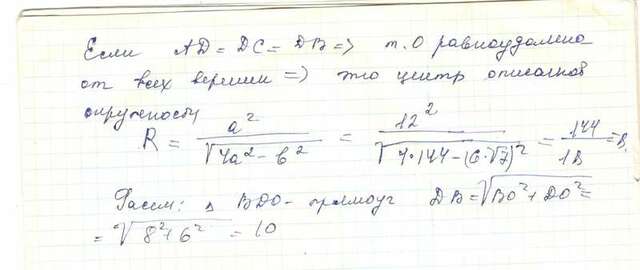 Если AD = DC = DB => т.О равноудалена
от всех вершин => это центр описаной
окружность
R = a² / √(4a² - b²) = 12² / √(4•144 - (6•√7)²) = 144 / 18 = 8.
Рассм: Δ BDO - прямоуг DB = √(BO² + DO²) =
= √(8² + 6²) = 10